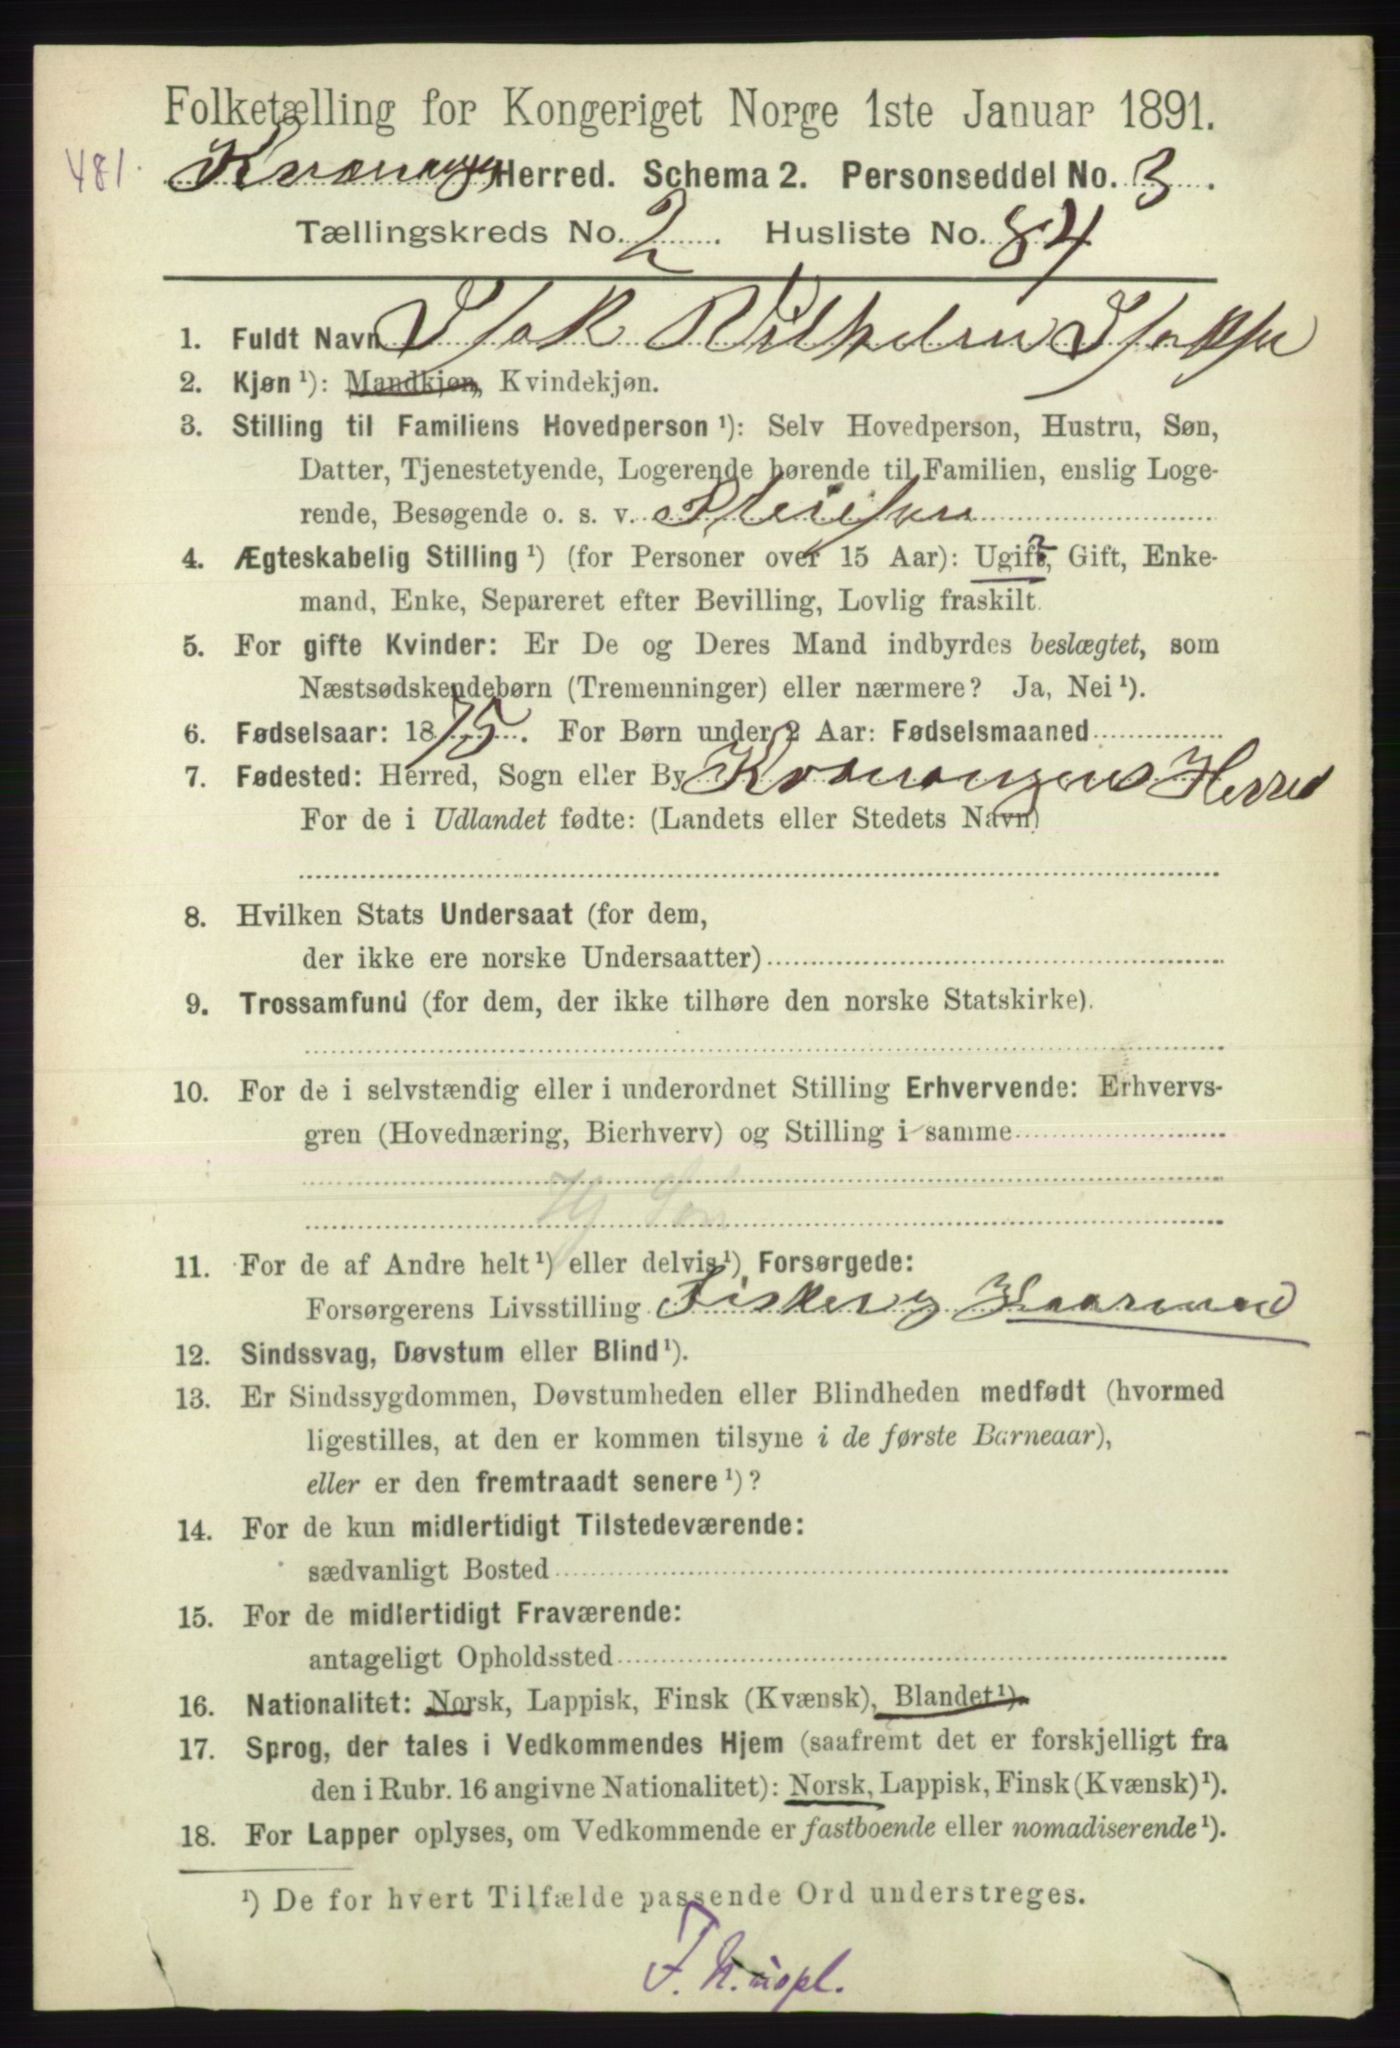 Folketælling for Kongeriget Norge 1ste Januar 1891.
481.
Kvænangen Herred. Schema 2. Personseddel No. 3.
Tællingskreds No. 2. Husliste No. 84
1. Fuldt Navn Isak Vilhelm Isaksen
2. Kjøn ¹): Mandkjøn, Kvindekjøn.
3. Stilling til Familiens Hovedperson ¹): Selv Hovedperson, Hustru, Søn,
Datter, Tjenestetyende, Logerende hørende til Familien, enslig Loge-
rende, Besøgende o. s. v. Pleiesøn
4. Ægteskabelig Stilling ¹) (for Personer over 15 Aar): Ugift, Gift, Enke-
mand, Enke, Separeret efter Bevilling, Lovlig fraskilt.
5. For gifte Kvinder: Er De og Deres Mand indbyrdes beslægtet, som
Næstsødskendebørn (Tremenninger) eller nærmere? Ja, Nei ¹).
6. Fødselsaar: 1875. For Børn under 2 Aar: Fødselsmaaned
7. Fødested: Herred, Sogn eller By Kvænangens Herred
For de i Udlandet fødte: (Landets eller Stedets Navn)
8. Hvilken Stats Undersaat (for dem,
der ikke ere norske Undersaatter)
9. Trossamfund (for dem, der ikke tilhøre den norske Statskirke).
10. For de i selvstændig eller i underordnet Stilling Erhvervende: Erhvervs-
gren (Hovednæring, Bierhverv) og Stilling i samme
11. For de af Andre helt ¹) eller delvis ¹) Forsørgede:
Forsørgerens Livsstilling Fisker og Gaarmand
12. Sindssvag, Døvstum eller Blind ¹).
13. Er Sindssygdommen, Døvstumheden eller Blindheden medfødt (hvormed
ligestilles, at den er kommen tilsyne i de første Barneaar),
eller er den fremtraadt senere ¹)?
14. For de kun midlertidigt Tilstedeværende:
sædvanligt Bosted
15. For de midlertidigt Fraværende:
antageligt Opholdssted
16. Nationalitet: Norsk, Lappisk, Finsk (Kvænsk), Blandet ¹).
17. Sprog, der tales i Vedkommendes Hjem (saafremt det er forskjelligt fra
den i Rubr. 16 angivne Nationalitet): Norsk, Lappisk, Finsk (Kvænsk) ¹).
18. For Lapper oplyses, om Vedkommende er fastboende eller nomadiserende ¹).
¹) De for hvert Tilfælde passende Ord understreges.